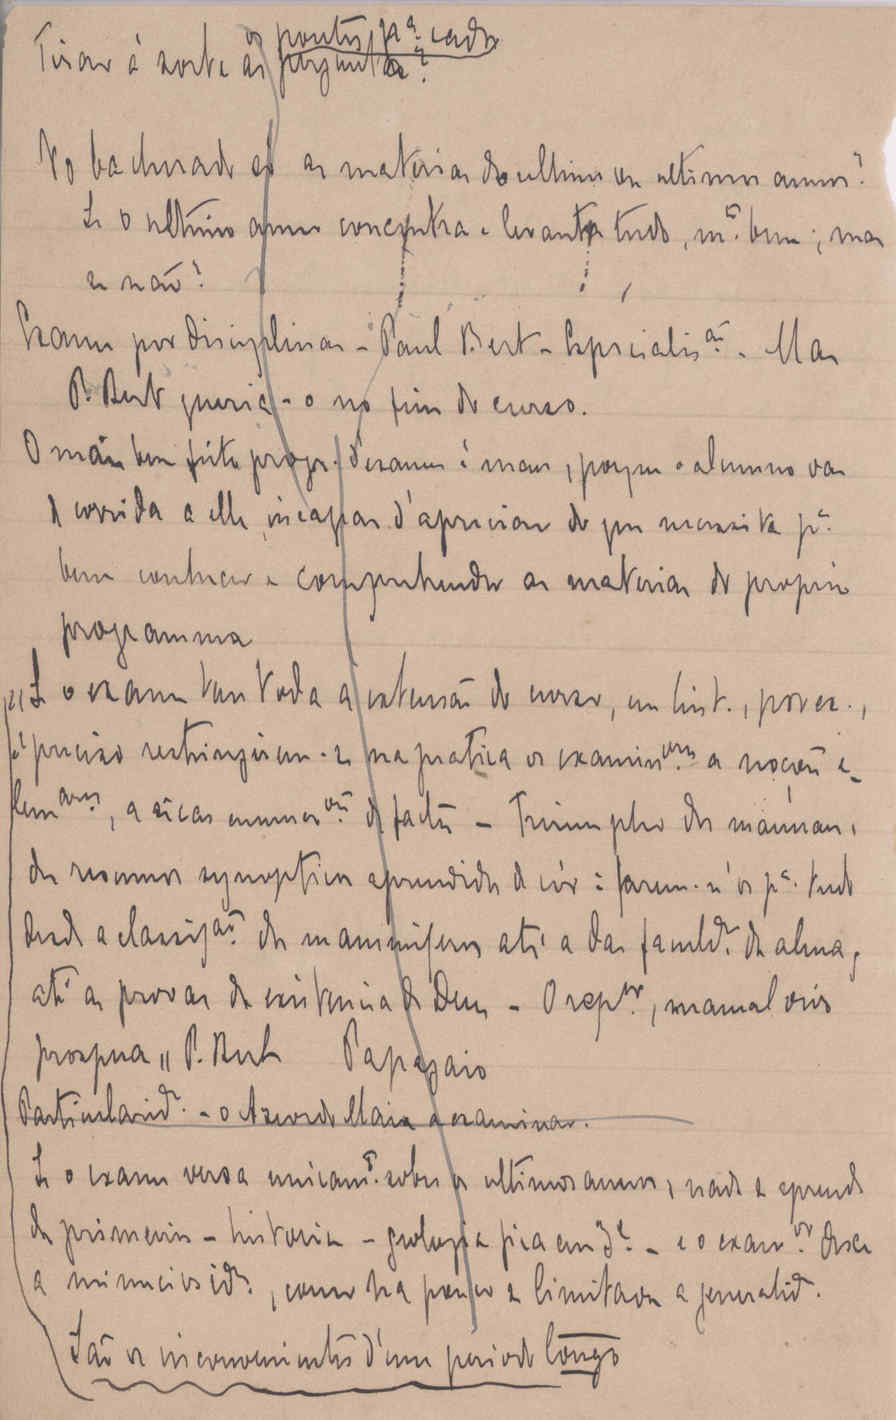 os pontos pª. cada
Tirar á sorte as perguntas?
No bacharado só as materias do ultimo ou ultimos annos?
Se o ultimo anno concentra e levanta tudo, mto. bem; mas
se não?
Exame por disciplinas - Paul Bert - Especialisão. - Mas
P. Bert queria-o no fim do curso.
O mais bem feito progr. d'exames é mau, porque o alumno vae
de corrida a elle, incapaz d'apreciar do que necessita pª.
bem conhecer e comprehender as materias do proprio
programma
"Se o exame tem toda a extensão do curso, em hist., por ex.,
é preciso restringirem-se na pratica os examinres. a noções e-
lemares., a sêcas enumerões. de factos - Triumpho dos manuaes,
dos resumos synopticos aprendidos de cór: fazem-n'os pª. tudo
desde a classifão. dos mammiferos até a das faculds. da alma,
até as provas da existencia de Deus - O repor., manual vivo
prospera" P. Bert Papagaio
Particularid. - o Azevedo Maia a examinar.
Se o exame versa unicamte. sobre os ultimos annos, nada se aprende
dos primeiros - historia - geologia fica em 3ª. - e o exanor. desce
a minuciosids., como ha pouco se limitava a generalids.
São os inconvenientes d'um periodo longo